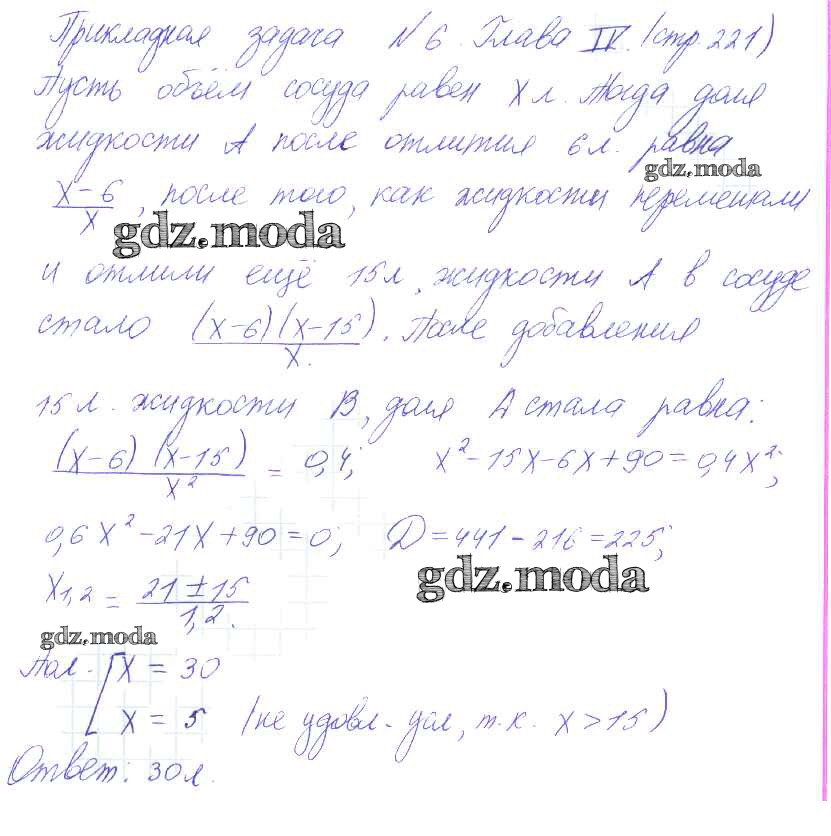 Прикладная задача №6. Глава IV. (стр. 221)
Пусть объём сосуда равен x л. Тогда доля
жидкости A после отлития 6 л. равна
gdz.moda
x-6/x, после того, как жидкости перемешали
gdz.moda
и отлили ещё 15 л, жидкости A в сосуде
стало (x-6)(x-15)/x. После добавления
15 л. жидкости B, доля A стала равна:
(x-6)(x-15)/x² = 0,4; x²-15x-6x+90=0,4x²;
0,6x²-21x+90=0; D=441-216=225;
gdz.moda
x1,2 = 21±15/1,2.
gdz.moda
Пол. [x = 30
x = 5 (не удовл. усл, т.к. x>15)
Ответ: 30 л.